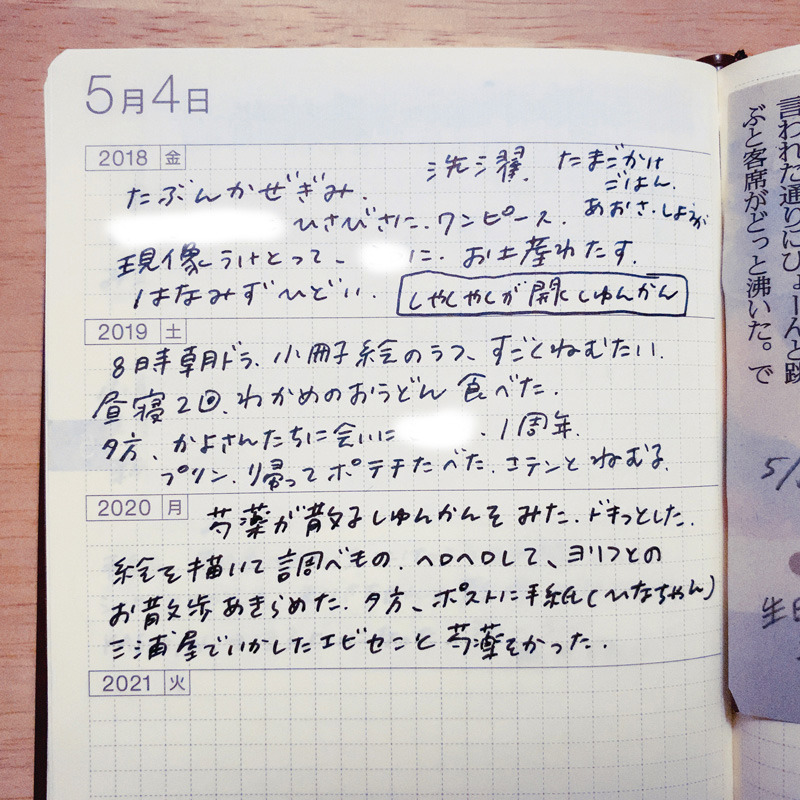 5月4日
2018 金
洗濯. たまごかけ
ごはん.
たぶんかぜぎみ.
あおさ.しょうが
ひさびさに.ワンピース.
現像うけとって、 に.お土産わたす.
はなみずひどい. しゃくやくが開くしゅんかん
2019 土
8時朝ドラ、小冊子絵のラフ、すごくねむたい.
昼寝2回、わかめのおうどん食べた.
夕方、かよさんたちに会いに .1周年.
プリン.帰ってポテチたべた.コテンとねむる.
2020 月
芍薬が散るしゅんかんをみた.ドキっとした.
絵を描いて調べもの.ヘロヘロして、ヨリフとの
お散歩あきらめた.夕方、ポストに手紙(ひなちゃん)
三浦屋でいかしたエビせんと芍薬をかった.
2021 火
言われた通りにぴょーんと跳
ぶと客席がどっと沸いた。で
5/
生日